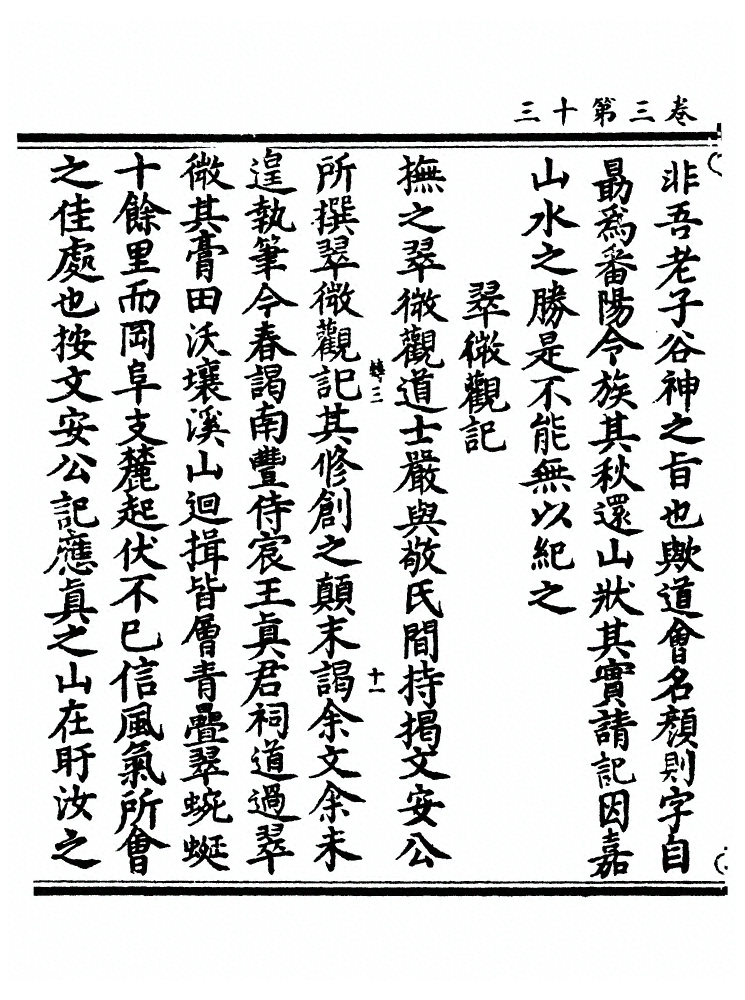 卷三第十三
非吾老子谷神之旨也歟道會名顏則字自
勗爲番陽令族其秋還山狀其實請記因嘉
山水之勝是不能無以紀之
翠微觀記
撫之翠微觀道士嚴與敬氏間持揭文安公
轉三
十一
所撰翠微觀記其修創之顛末謁余文余未
遑執筆今春謁南豐侍宸王眞君祠道過翠
微其膏田沃壤溪山迴揖皆層青疊翠蜿蜒
十餘里而岡阜支麓起伏不已信風氣所會
之佳處也按文安公記應眞之山在盱汝之